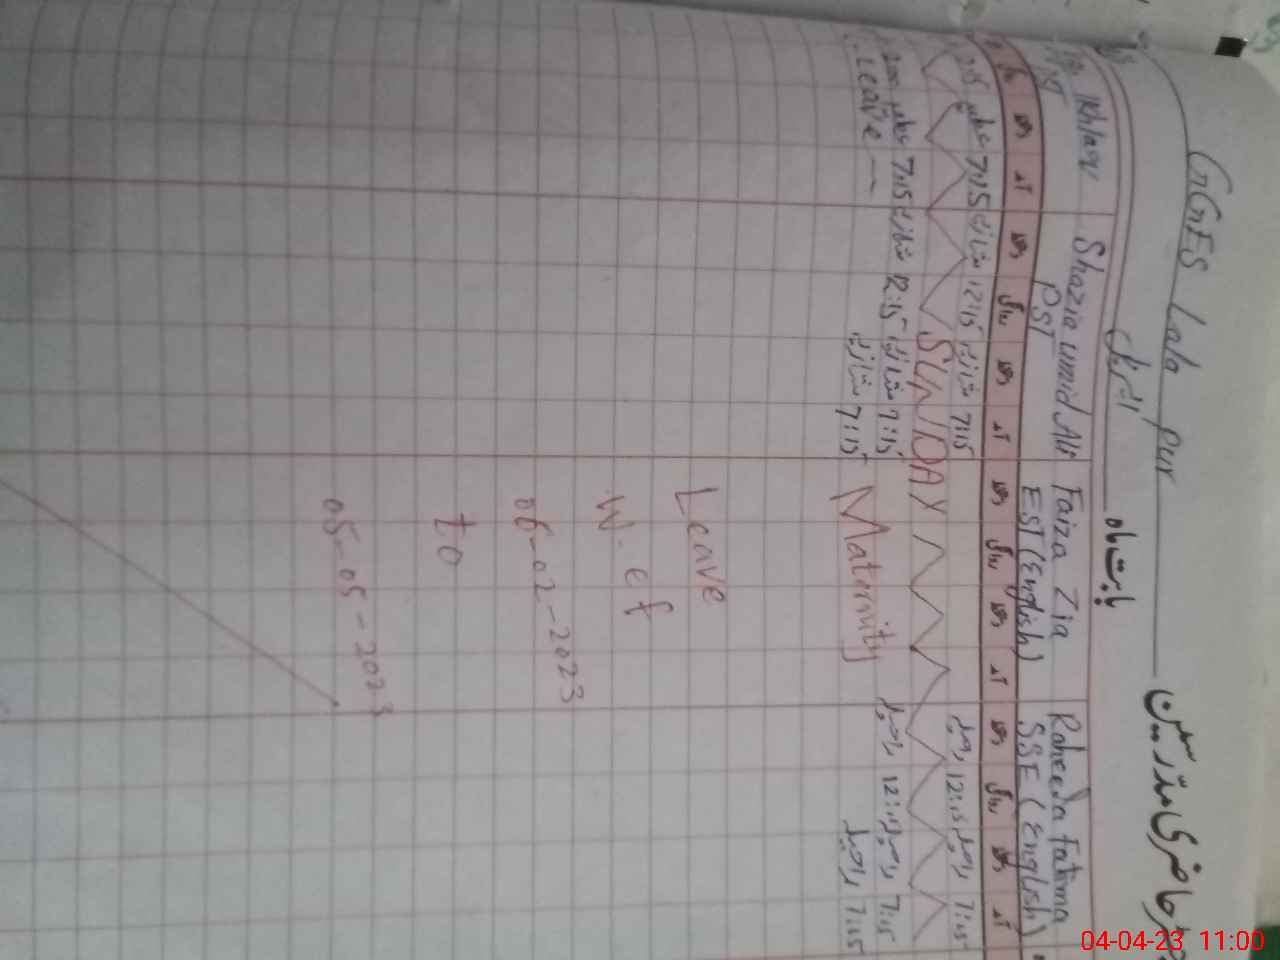 حاضری مدرسین
GGES Lala pur
بابت ماہ اپریل
Ikhlaq
Shazia umid Ali
PST
Faiza Zia
EST (English)
Raheela Fatima
SSE (English)
آمد دستخط روانگی دستخط آمد دستخط روانگی دستخط آمد دستخط روانگی دستخط
7:15 شازیہ 12:15 شازیہ 7:15
راحیلہ 12:15 راحیلہ 7:15
SUNDAY
7:15 شازیہ 12:15 شازیہ 7:15
راحیلہ 12:15 راحیلہ 7:15
Leave
شازیہ 7:15
راحیلہ 7:15
Maternity
Leave
W.ef
06-02-2023
to
05-05-2023
04-04-23 11:00